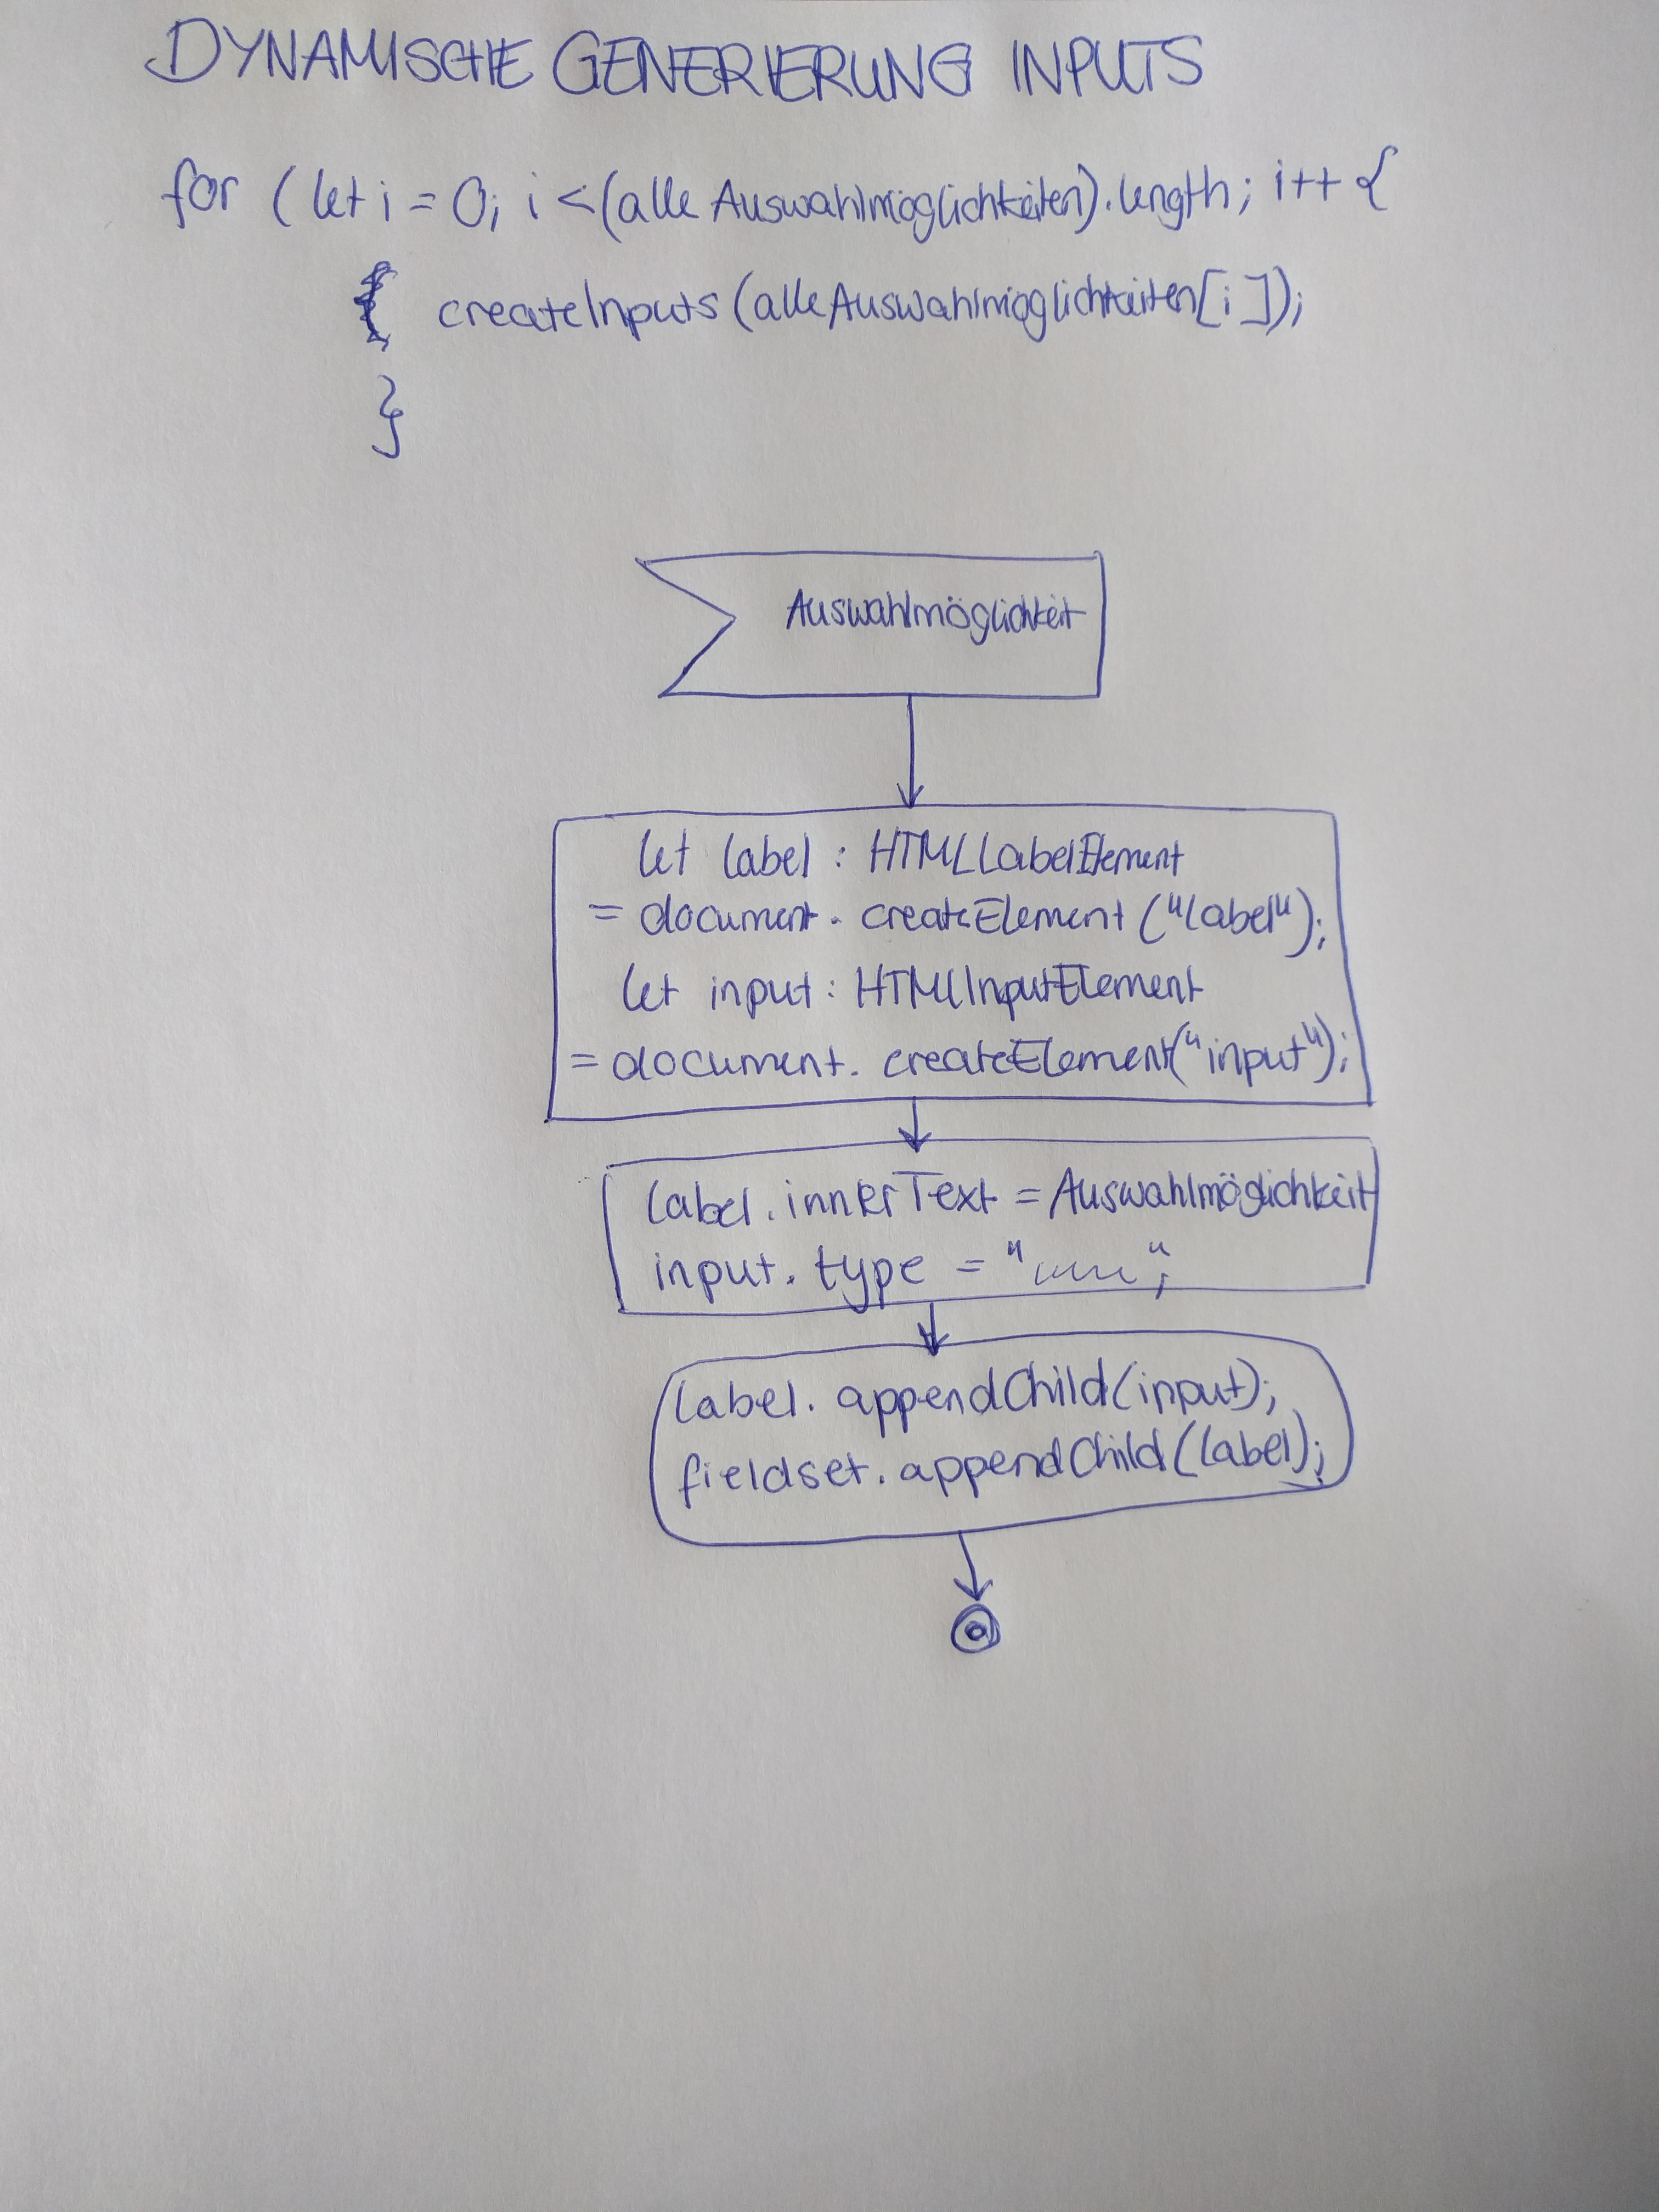 DYNAMISCHE GENERIERUNG INPUTS
for (let i = 0; i < (alle Auswahlmöglichkeiten).length; i++ {
createInputs (alleAuswahlmöglichkeiten[i]);
}
Auswahlmöglichkeit
let label : HTMLLabelElement
= document. createElement ("label");
let input : HTMLInputElement
= document. createElement("input");
label.innerText = Auswahlmöglichkeit
input. type = " ";
label. appendChild(input);
fieldset. appendChild(label);